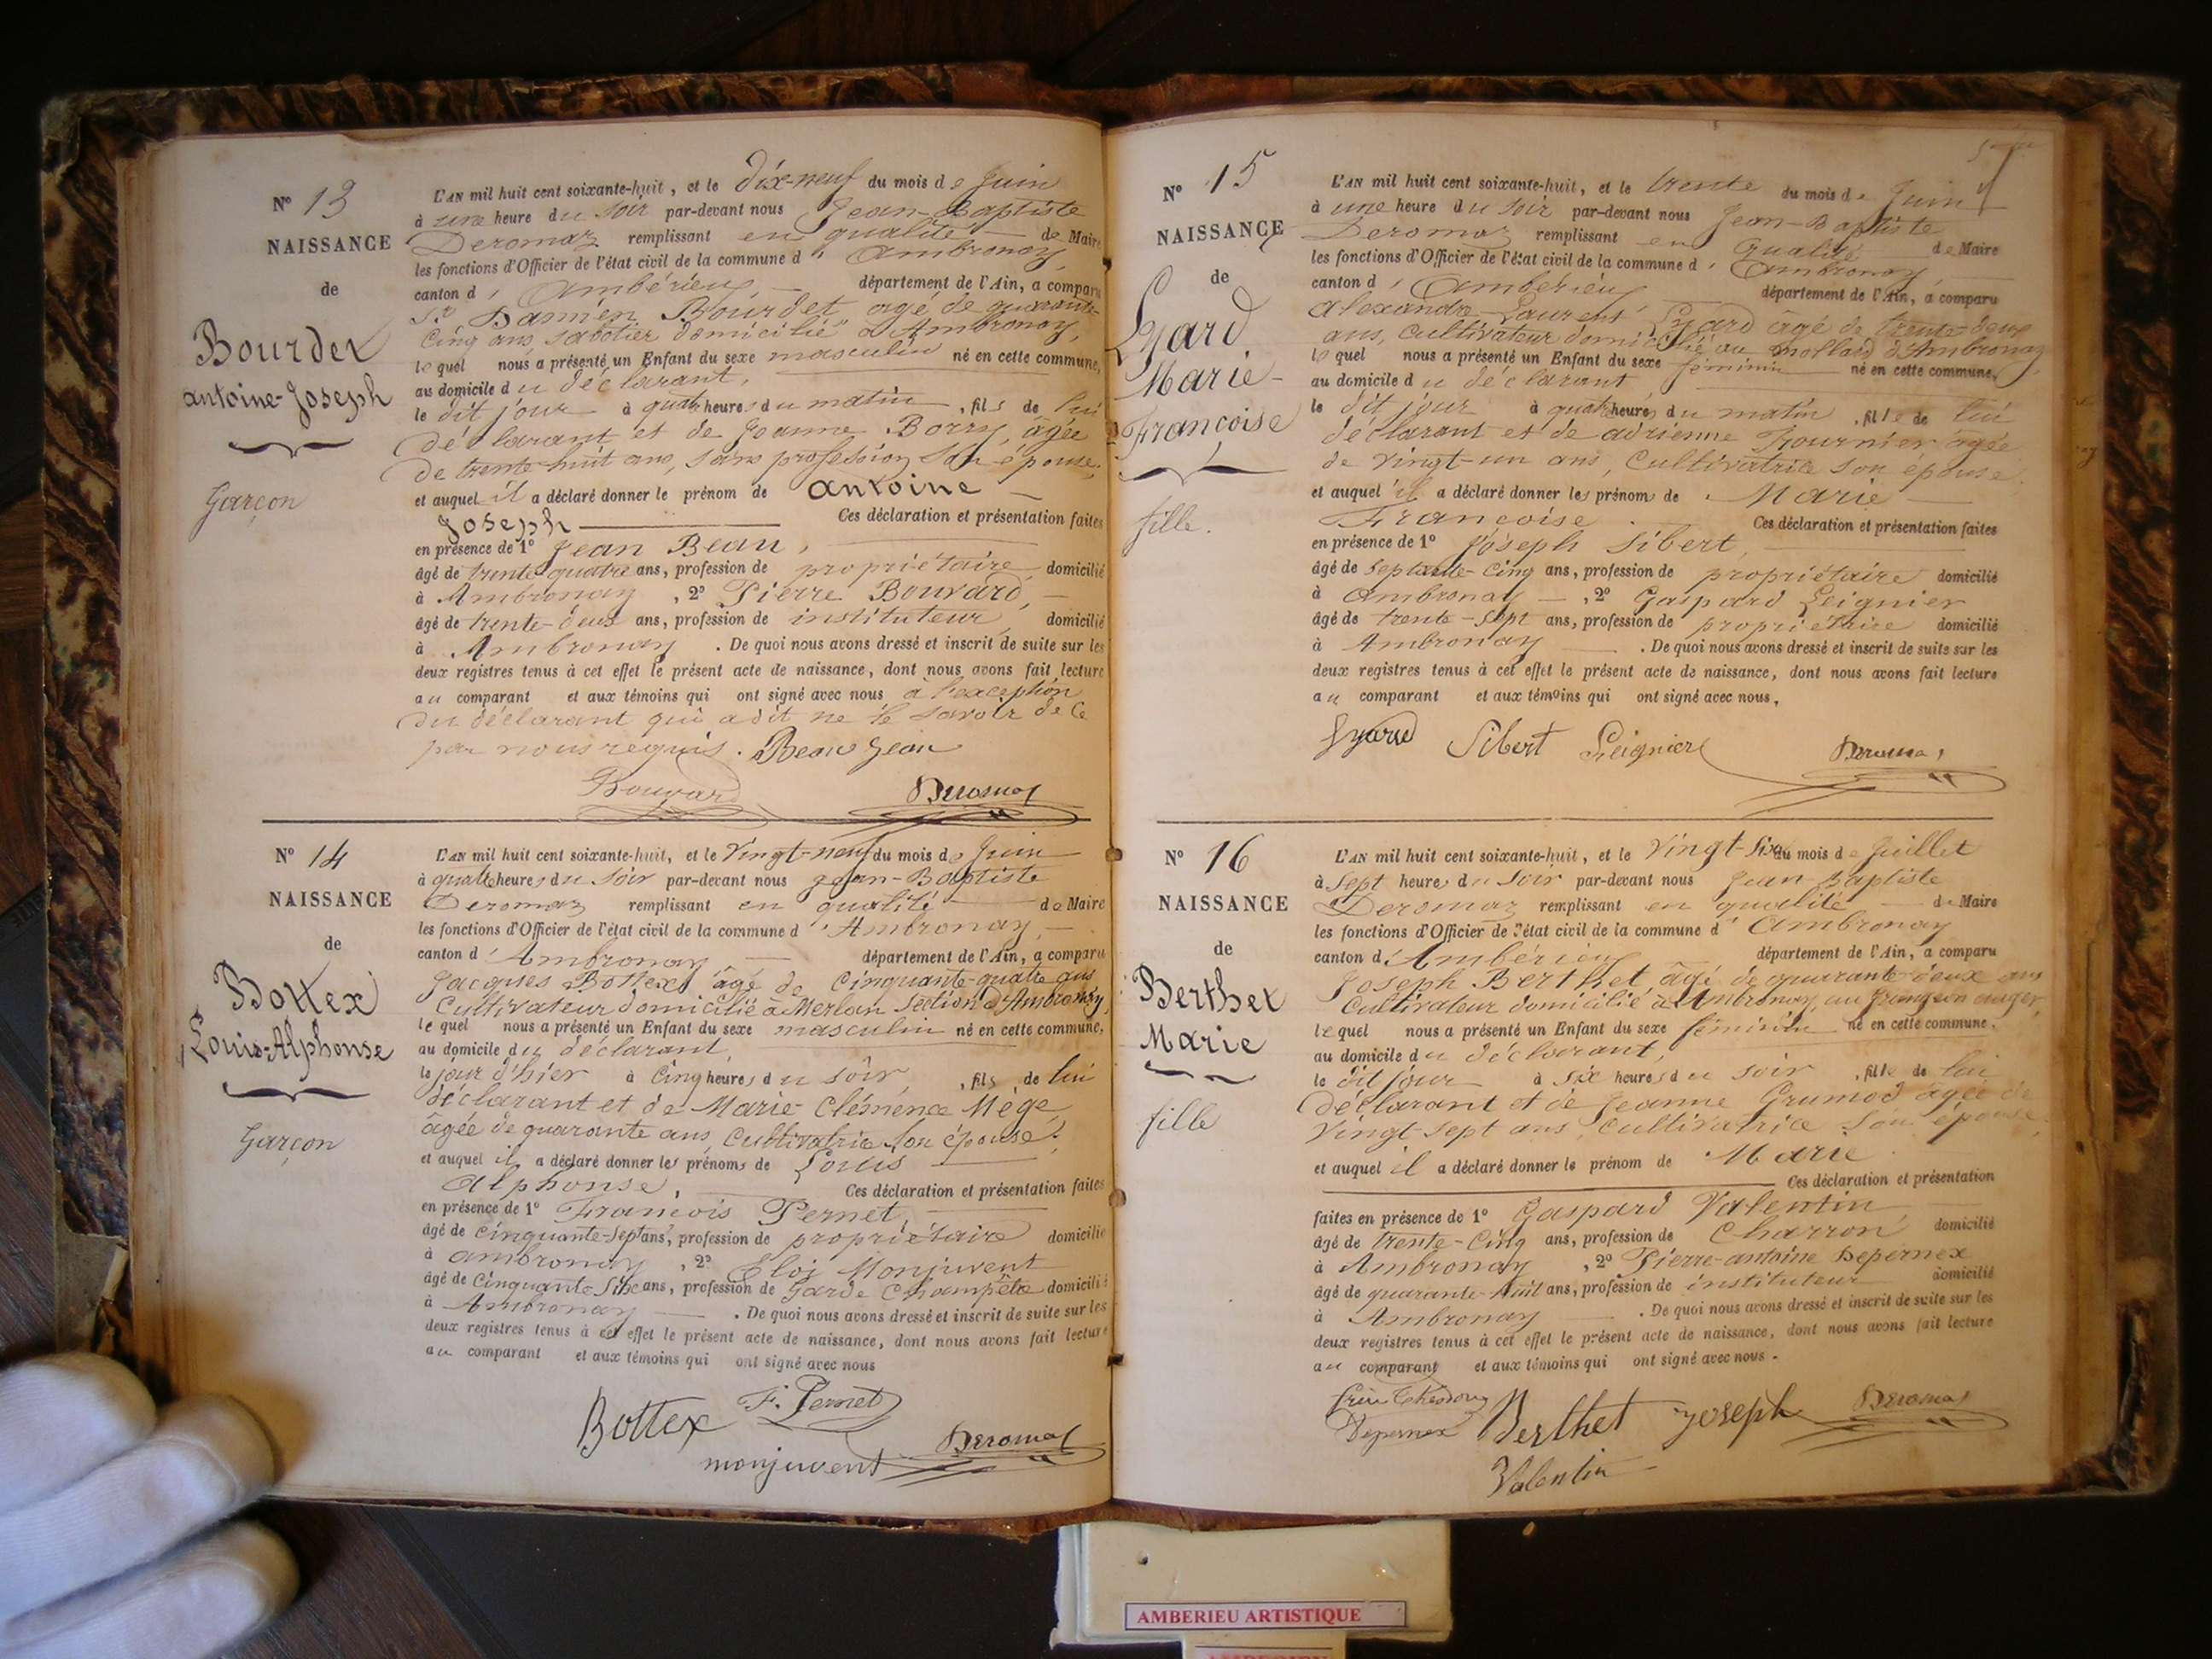 N° 13
NAISSANCE
de
Bourdet
antoine-Joseph
Garçon
L'AN mil huit cent soixante-huit, et le dix-neuf du mois de Juin
à une heure du soir par-devant nous Jean-Baptiste
Deromaz remplissant en qualité de Maire
les fonctions d'Officier de l'état civil de la commune d' Ambronay,
canton d' Ambérieu, département de l'Ain, a comparu
Sr Damien Bourdet agé de quarante-
cinq ans, sabotier domicilié à Ambronay,
lequel nous a présenté un Enfant du sexe masculin né en cette commune,
au domicile du déclarant,
le dit jour à quatre heures du matin, fils de lui
déclarant et de Jeanne Borry, agée
de trente-huit ans, sans profession son épouse,
et auquel il a déclaré donner le prénom de antoine
Joseph Ces déclaration et présentation faites
en présence de 1° Jean Beau,
âgé de trente quatre ans, profession de propriétaire domicilié
à Ambronay, 2° Pierre Bouvard,
âgé de trente-deux ans, profession de instituteur domicilié
à Ambronay. De quoi nous avons dressé et inscrit de suite sur les
deux registres tenus à cet effet le présent acte de naissance, dont nous avons fait lecture
au comparant et aux témoins qui ont signé avec nous à l'exception
du déclarant qui a dit ne le savoir de ce
par nous requis. Beau Jean
Bouvard Deromaz
N° 14
NAISSANCE
de
Bottex
Louis-Alphonse
Garçon
L'AN mil huit cent soixante-huit, et le vingt-neuf du mois de Juin
à quatre heures du soir par-devant nous Jean-Baptiste
Deromaz remplissant en qualité de Maire
les fonctions d'Officier de l'état civil de la commune d' Ambronay,
canton d' Ambronay, département de l'Ain, a comparu
Jacques Bottex âgé de cinquante-quatre ans
Cultivateur domicilié à Merloz Section d'Ambronay,
lequel nous a présenté un Enfant du sexe masculin né en cette commune,
au domicile du déclarant,
le jour d'hier à cinq heures du soir, fils de lui
déclarant et de Marie-Clémence Mége,
âgée de quarante ans, Cultivatrice son épouse,
et auquel il a déclaré donner les prénoms de Louis
Alphonse, Ces déclaration et présentation faites
en présence de 1° Francois Pernet,
âgé de cinquante-sept ans, profession de propriétaire domicilié
à ambronay, 2° Eloi Monjuvent
âgé de cinquante-six ans, profession de Garde Champêtre domicilié
à Ambronay. De quoi nous avons dressé et inscrit de suite sur les
deux registres tenus à cet effet le présent acte de naissance, dont nous avons fait lecture
au comparant et aux témoins qui ont signé avec nous
Bottex F. Pernet
monjuvent Deromaz
N° 15
NAISSANCE
de
Lyard
Marie-
Françoise
fille.
L'AN mil huit cent soixante-huit, et le trente du mois de Juin
à une heure du soir par-devant nous Jean-Baptiste
Deromaz remplissant en qualité de Maire
les fonctions d'Officier de l'état civil de la commune d' Ambronay
canton d' Ambérieu département de l'Ain, a comparu
Alexandre Laurent Lyard âgé de trente-deux
ans, cultivateur domicilié au mollard d'Ambronay
lequel nous a présenté un Enfant du sexe féminin né en cette commune,
au domicile du déclarant
le dit jour à quatre heures du matin, fille de lui
déclarant et de adrienne Fournier agée
de vingt-un ans, Cultivatrice son épouse,
et auquel il a déclaré donner les prénoms de Marie
Françoise Ces déclaration et présentation faites
en présence de 1° Joseph Sibert,
âgé de septante-cinq ans, profession de propriétaire domicilié
à Ambronay, 2° Gaspard Leignier
âgé de trente-sept ans, profession de propriétaire domicilié
à Ambronay. De quoi nous avons dressé et inscrit de suite sur les
deux registres tenus à cet effet le présent acte de naissance, dont nous avons fait lecture
au comparant et aux témoins qui ont signé avec nous,
Lyard Sibert Leignier Deromaz
N° 16
NAISSANCE
de
Berthet
Marie
fille
L'AN mil huit cent soixante-huit, et le vingt-six du mois de Juillet
à sept heures du soir par-devant nous Jean-Baptiste
Deromaz remplissant en qualité de Maire
les fonctions d'Officier de l'état civil de la commune d' Ambronay
canton d' Ambérieu département de l'Ain, a comparu
Joseph Berthet, âgé de quarante-deux ans
Cultivateur domicilié à Ambronay, au
lequel nous a présenté un Enfant du sexe féminin né en cette commune,
au domicile du déclarant,
le dit jour à six heures du soir, fille de lui
déclarant et de Jeanne Grumod âgée de
vingt-sept ans Cultivatrice son épouse,
et auquel il a déclaré donner le prénom de Marie
Ces déclaration et présentation
faites en présence de 1° Gaspard Valentin
âgé de trente-cinq ans, profession de Charron domicilié
à Ambronay, 2° Pierre-antoine Depernex
âgé de quarante-huit ans, profession de instituteur domicilié
à Ambronay. De quoi nous avons dressé et inscrit de suite sur les
deux registres tenus à cet effet le présent acte de naissance, dont nous avons fait lecture
au comparant et aux témoins qui ont signé avec nous.
Depernex Berthet Joseph Deromaz
Valentin
AMBERIEU ARTISTIQUE